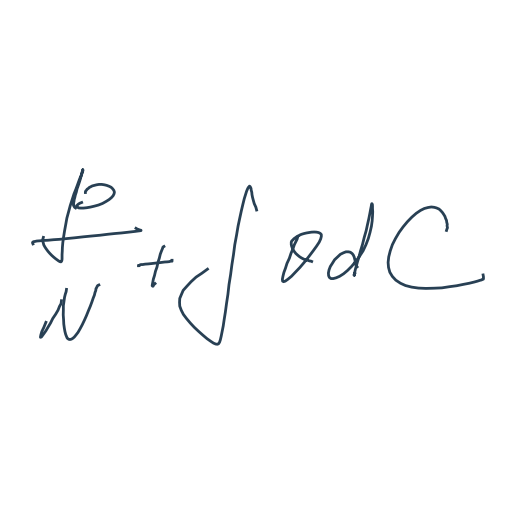 \frac{p}{N} + \int \theta d C